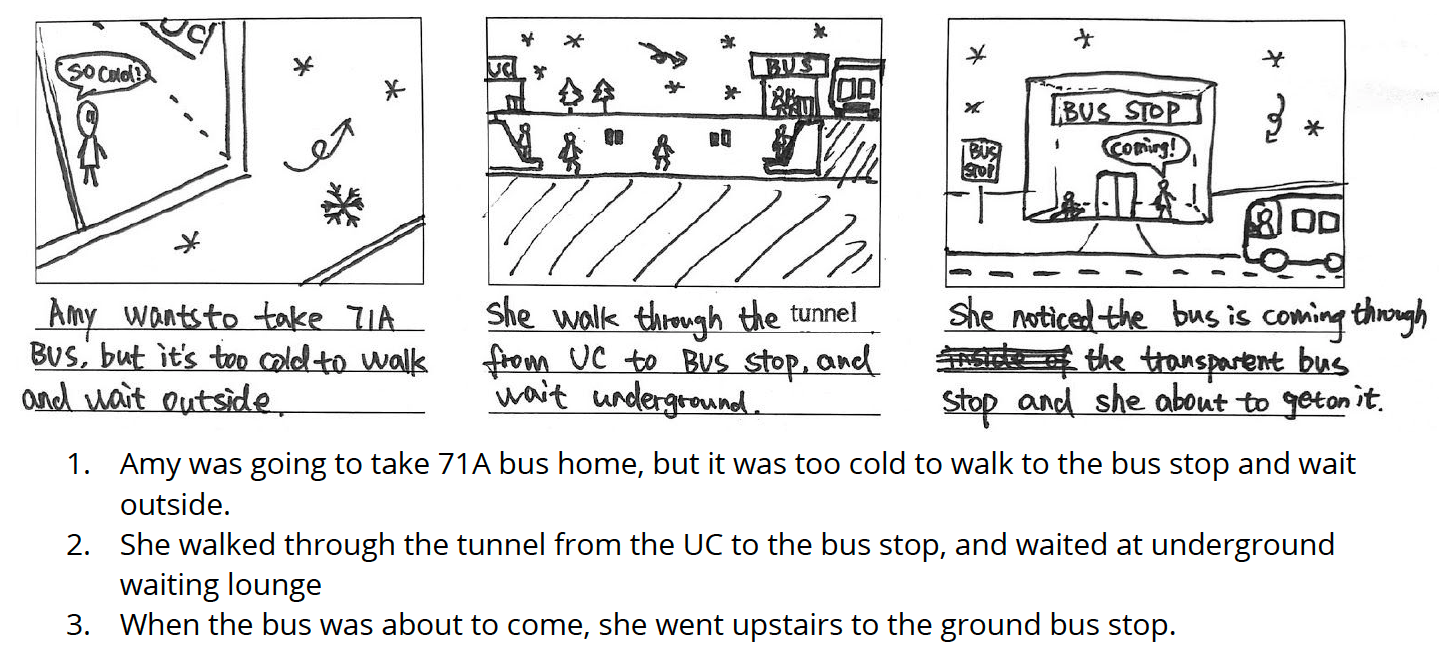 UC
SO Cold!
UC
BUS
BUS STOP
coming!
BUS
STOP
Amy wants to take 71A
BUS, but it's too cold to walk
and wait outside.
She walk through the tunnel
from UC to BUS stop, and
wait underground.
She noticed the bus is coming through
inside of the transparent bus
stop and she about to get on it.
1. Amy was going to take 71A bus home, but it was too cold to walk to the bus stop and wait
outside.
2. She walked through the tunnel from the UC to the bus stop, and waited at underground
waiting lounge
3. When the bus was about to come, she went upstairs to the ground bus stop.